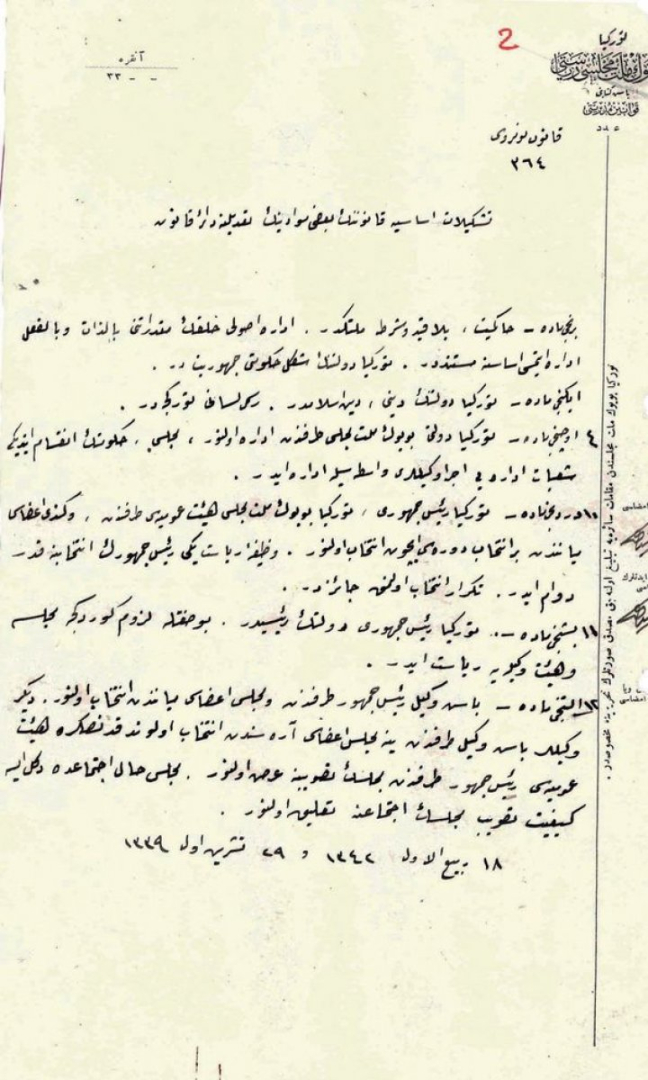 2
توركيا
بيوك ملت مجلسى رياستى
باش كتابتى
قوانين مديريتى
عدد
آنقره
٣٣
قانون نومروسى
٣٦٤
تشكيلات اساسيه قانوننك بعضى موادينك تعديلنه دائر قانون
برنجى ماده – حاكميت، بلا قيد و شرط ملتكدر. اداره اصولى خلقك مقدراتنى بالذات و بالفعل
اداره ايتمسى اساسنه مستنددر. توركيا دولتنك شكل حكومتى جمهوريت در.
ايكنجى ماده – توركيا دولتنك دينى، دين اسلامدر. رسمى لسانى توركجه در.
٤ اوچنجى ماده – توركيا دولتى بويوك ملت مجلسى طرفندن اداره اولنور، مجلس، حكومتك انقسام ايتديكى
شعبات اداره يى اجرا وكيللرى واسطه سيله اداره ايدر.
١٠ دردنجى ماده – توركيا رئيس جمهورى، توركيا بويوك ملت مجلسى هيئت عموميه سى طرفندن، و كندى اعضاسى
مياننдن بر انتخاب دوره سى ايچون انتخاب اولنور. وظيفه رياست يكى رئيس جمهورك انتخابنه قدر
دوام ايدر. تكرار انتخاب اولنمق جائزدر.
١١ بشنجى ماده – توركيا رئيس جمهورى دولتك رئيسيدر. بو صفتله لزوم كوردكجه مجلسه
و هيئت وكيليه رياست ايدر.
١٢ آلتنجى ماده – باش وكيل رئيس جمهور طرفندن و مجلس اعضاسى ميانندن انتخاب اولنور. ديكر
وكيللر باش وكيل طرفندن ينه مجلس اعضاسى آره سندن انتخاب اولوندقدنصكره هيئت
عموميه سى رئيس جمهور طرفندن مجلسك تصويبنه عرض اولنور. مجلس حال اجتماعده دكل ايسه
كيفيت تصويب مجلسك اجتماعنه تعليق اولنور.
١٨ ربيع الاول ١٣٤٢ و ٢٩ تشرين اول ١٣٣٩
توركيا بويوك ملت مجلسندن مقامات سائره يه تبليغ اوله جق مصدق صورتلرك تحريرينه مخصوصدر.